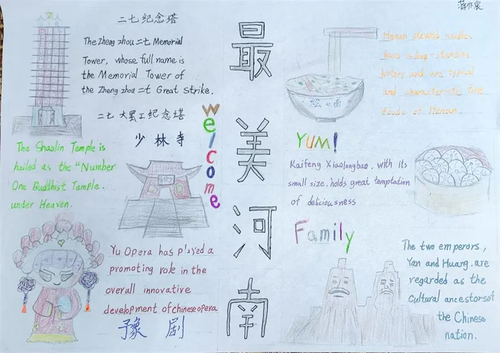 二七纪念塔
The Zhengzhou 二七 Memorial
Tower, whose full name is
the Memorial Tower of
the Zhengzhou 二七 Great Strike.
二七大罢工纪念塔
少林寺
The Shaolin Temple is
hailed as the "Number
One Buddhist Temple
under Heaven.
Yu Opera has played a
promoting role in the
overall innovative
development of chinese opera
豫剧
Welcome
最美河南
Henan
noodles
are typical
and characteristic
foods of Henan.
YUM!
Kaifeng Xiaolongbao, with its
small size, holds great temptation
of deliciousness
Family
The two emperors,
Yan and Huang, are
regarded as the
Cultural ancestors of
the Chinese
nation.